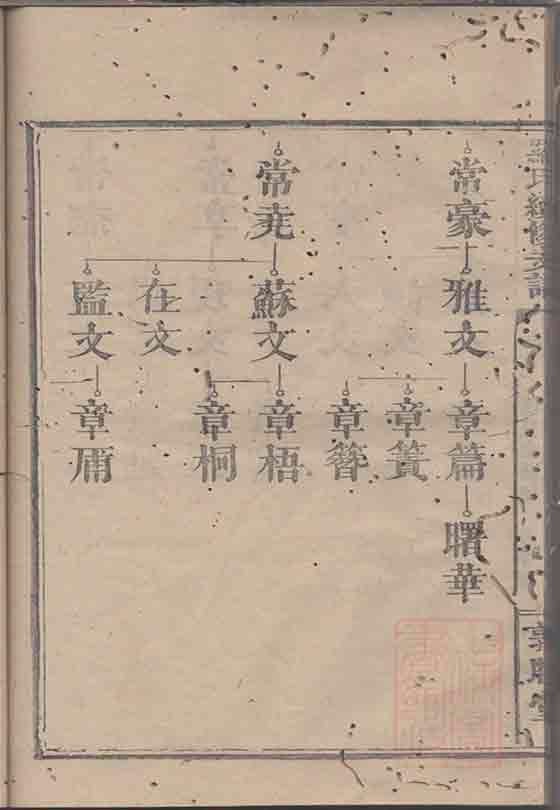 常豪
雅文
章篇
曙華
章簧
章簪
常堯
蘇文
章梧
章桐
在文
監文
章甫